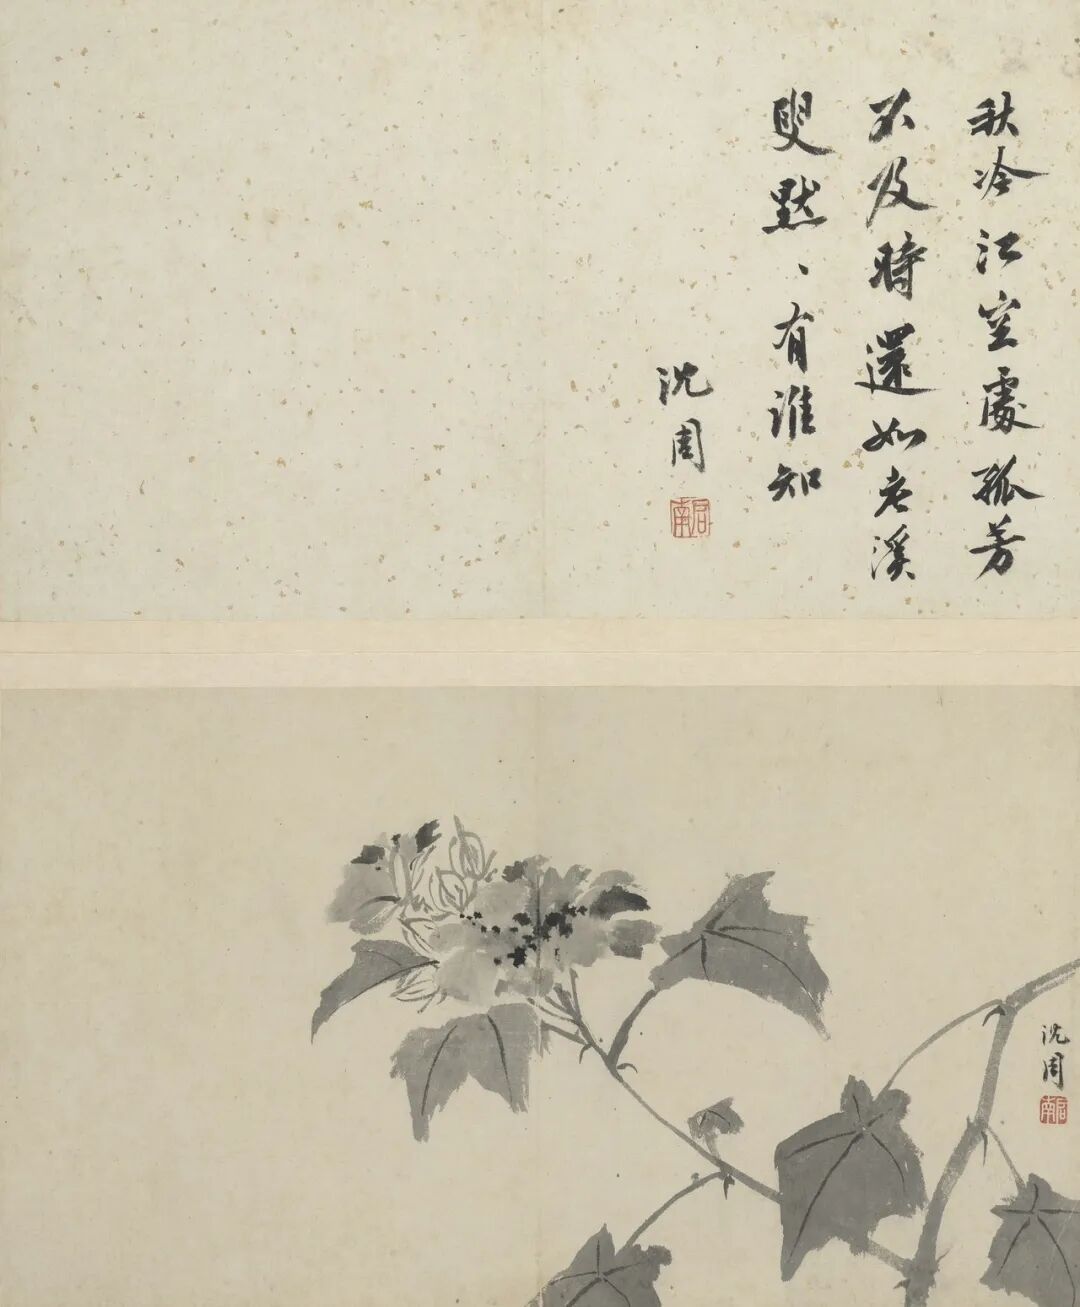 秋冷江空處孤芳
不及時還如老溪
叟默、有誰知
沈周
啟南
沈周
啟南